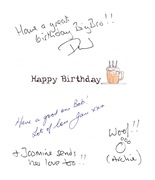 Have a great
birthday BigBro!!
Happy Birthday
Have a good one Bob!
Lot of love Jan xxx
Woof!!
& Jasmine sends
her love too!!
(Archie)